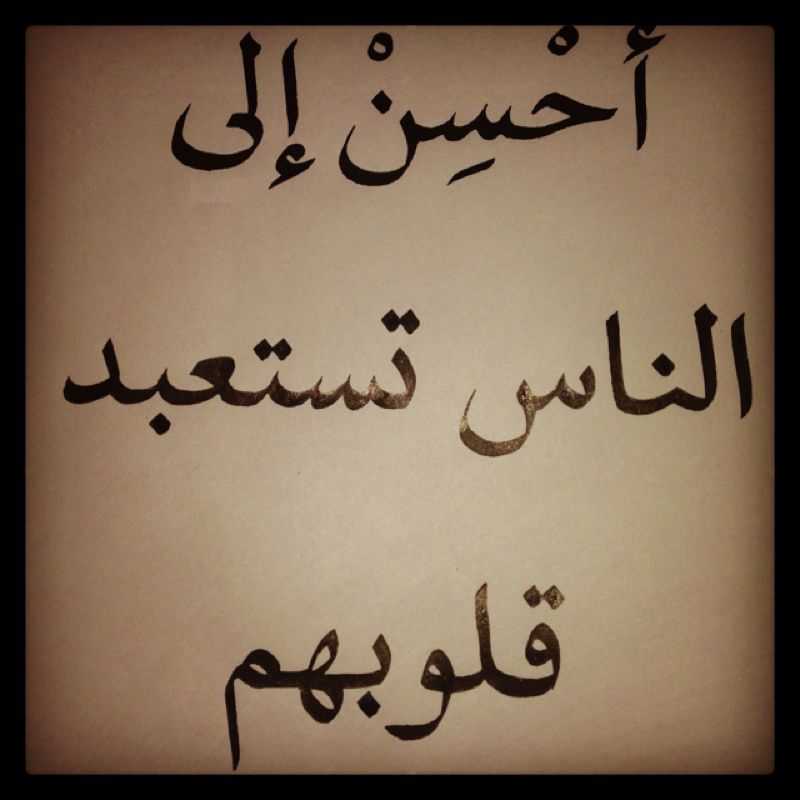 أحْسِنْ إلى
الناس تستعبد
قلوبهم